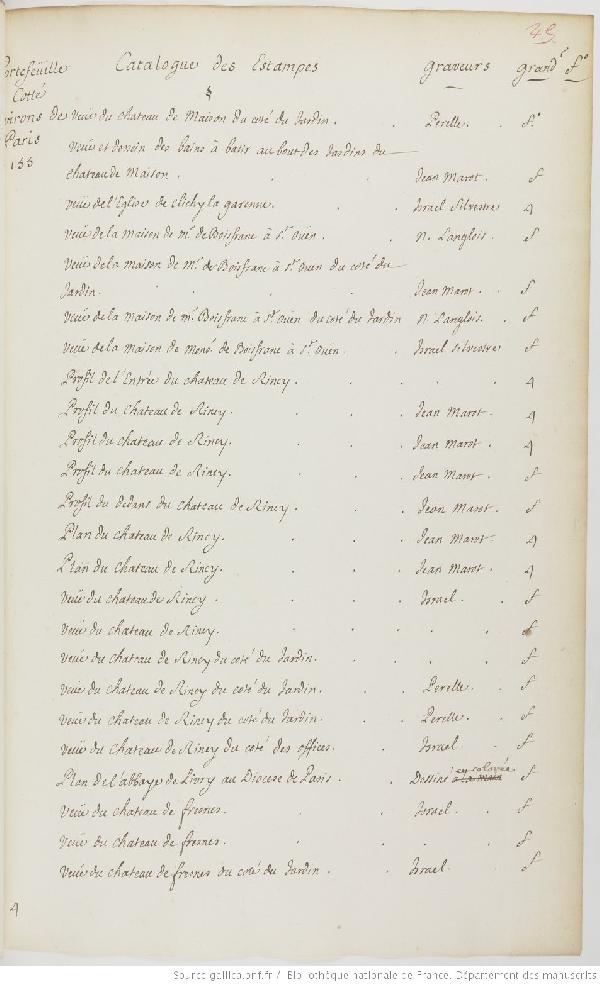 45
Portefeüille Catalogue des Estampes graveurs grandr fo
Cotté §
Environs de Paris 133 Veuë du chateau de Maison du coté du Jardin. Perelle. fo.
Veuë et dessin des bains à batir au bout des Jardins du
chateau de Maison. Jean Marot. f
veuë de l'Eglise de Clichy la garenne. Israel Silvestre 4
Veuë de la maison de mr. de Boisfranc à St. Ouën. N. Langlois. f
Veuë de la maison de mr. de Boisfranc à St. Ouen du coté du
Jardin. Jean Marot. f
Veuë de la maison de mr. Boisfranc à St. ouën du coté du Jardin N. Langlois. f
Veuë de la maison de monsr. de Boisfranc à St. Ouën. Israel silvestre f
Profil de l'Entrée du chateau de Rincy. 4
Profil du Chateau de Rincy. Jean Marot. 4
Profil du chateau de Rincy. Jean Marot. 4
Profil du chateau de Rincy. Jean Marot. f
Profil du dedans du chateau de Rincy. Jean Marot. f
Plan du chateau de Rincy. Jean Marot. 4
Plan du chateau de Rincy. Jean Marot. 4
Veuë du chateau de Rincy. Israel. f
Veuë du chateau de Rincy. f
Veuë du chateau de Rincy du coté du Jardin. f
Veuë du chateau de Rincy du coté du Jardin. Perelle. f
Veuë du chateau de Rincy du coté du Jardin. Perelle. f
Veuë du Chateau de Rincy du coté des offices. Israel. f
Plan de l'abbaye de Livry au Diocese de Paris. Dessiné à la main en colorée f
Veuë du chateau de fresnes. Israel. f
Veuë du chateau de fresnes. f
Veuë du chateau de fresnes du coté du Jardin. Israel. f
4
Source gallica.bnf.fr / Bibliothèque nationale de France. Département des manuscrits